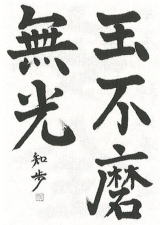 玉不磨
無光
知歩